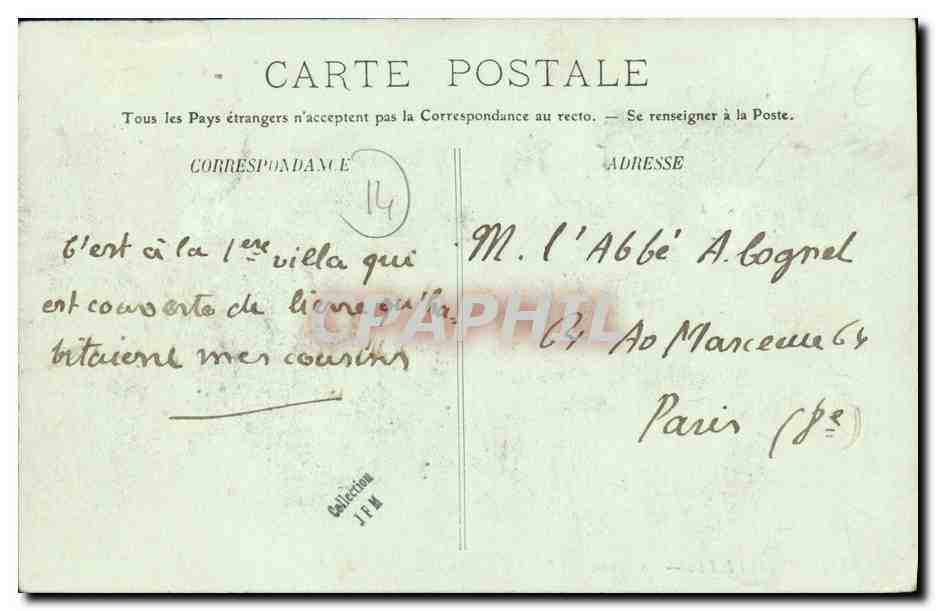 CARTE POSTALE
Tous les Pays étrangers n'acceptent pas la Correspondance au recto. — Se renseigner à la Poste.
CORRESPONDANCE
14
C'est à la 1ere villa qui
est couverte de lierre qu'ha-
bitaient mes cousins
ADRESSE
M. l'Abbé A. Cognel
64 Av Marceau 64
Paris (8e)
CPAPHIL
Collection
JFM